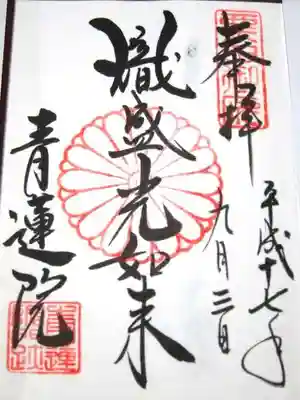 奉拝
平成十七年
九月三日
熾盛光如来
青蓮院